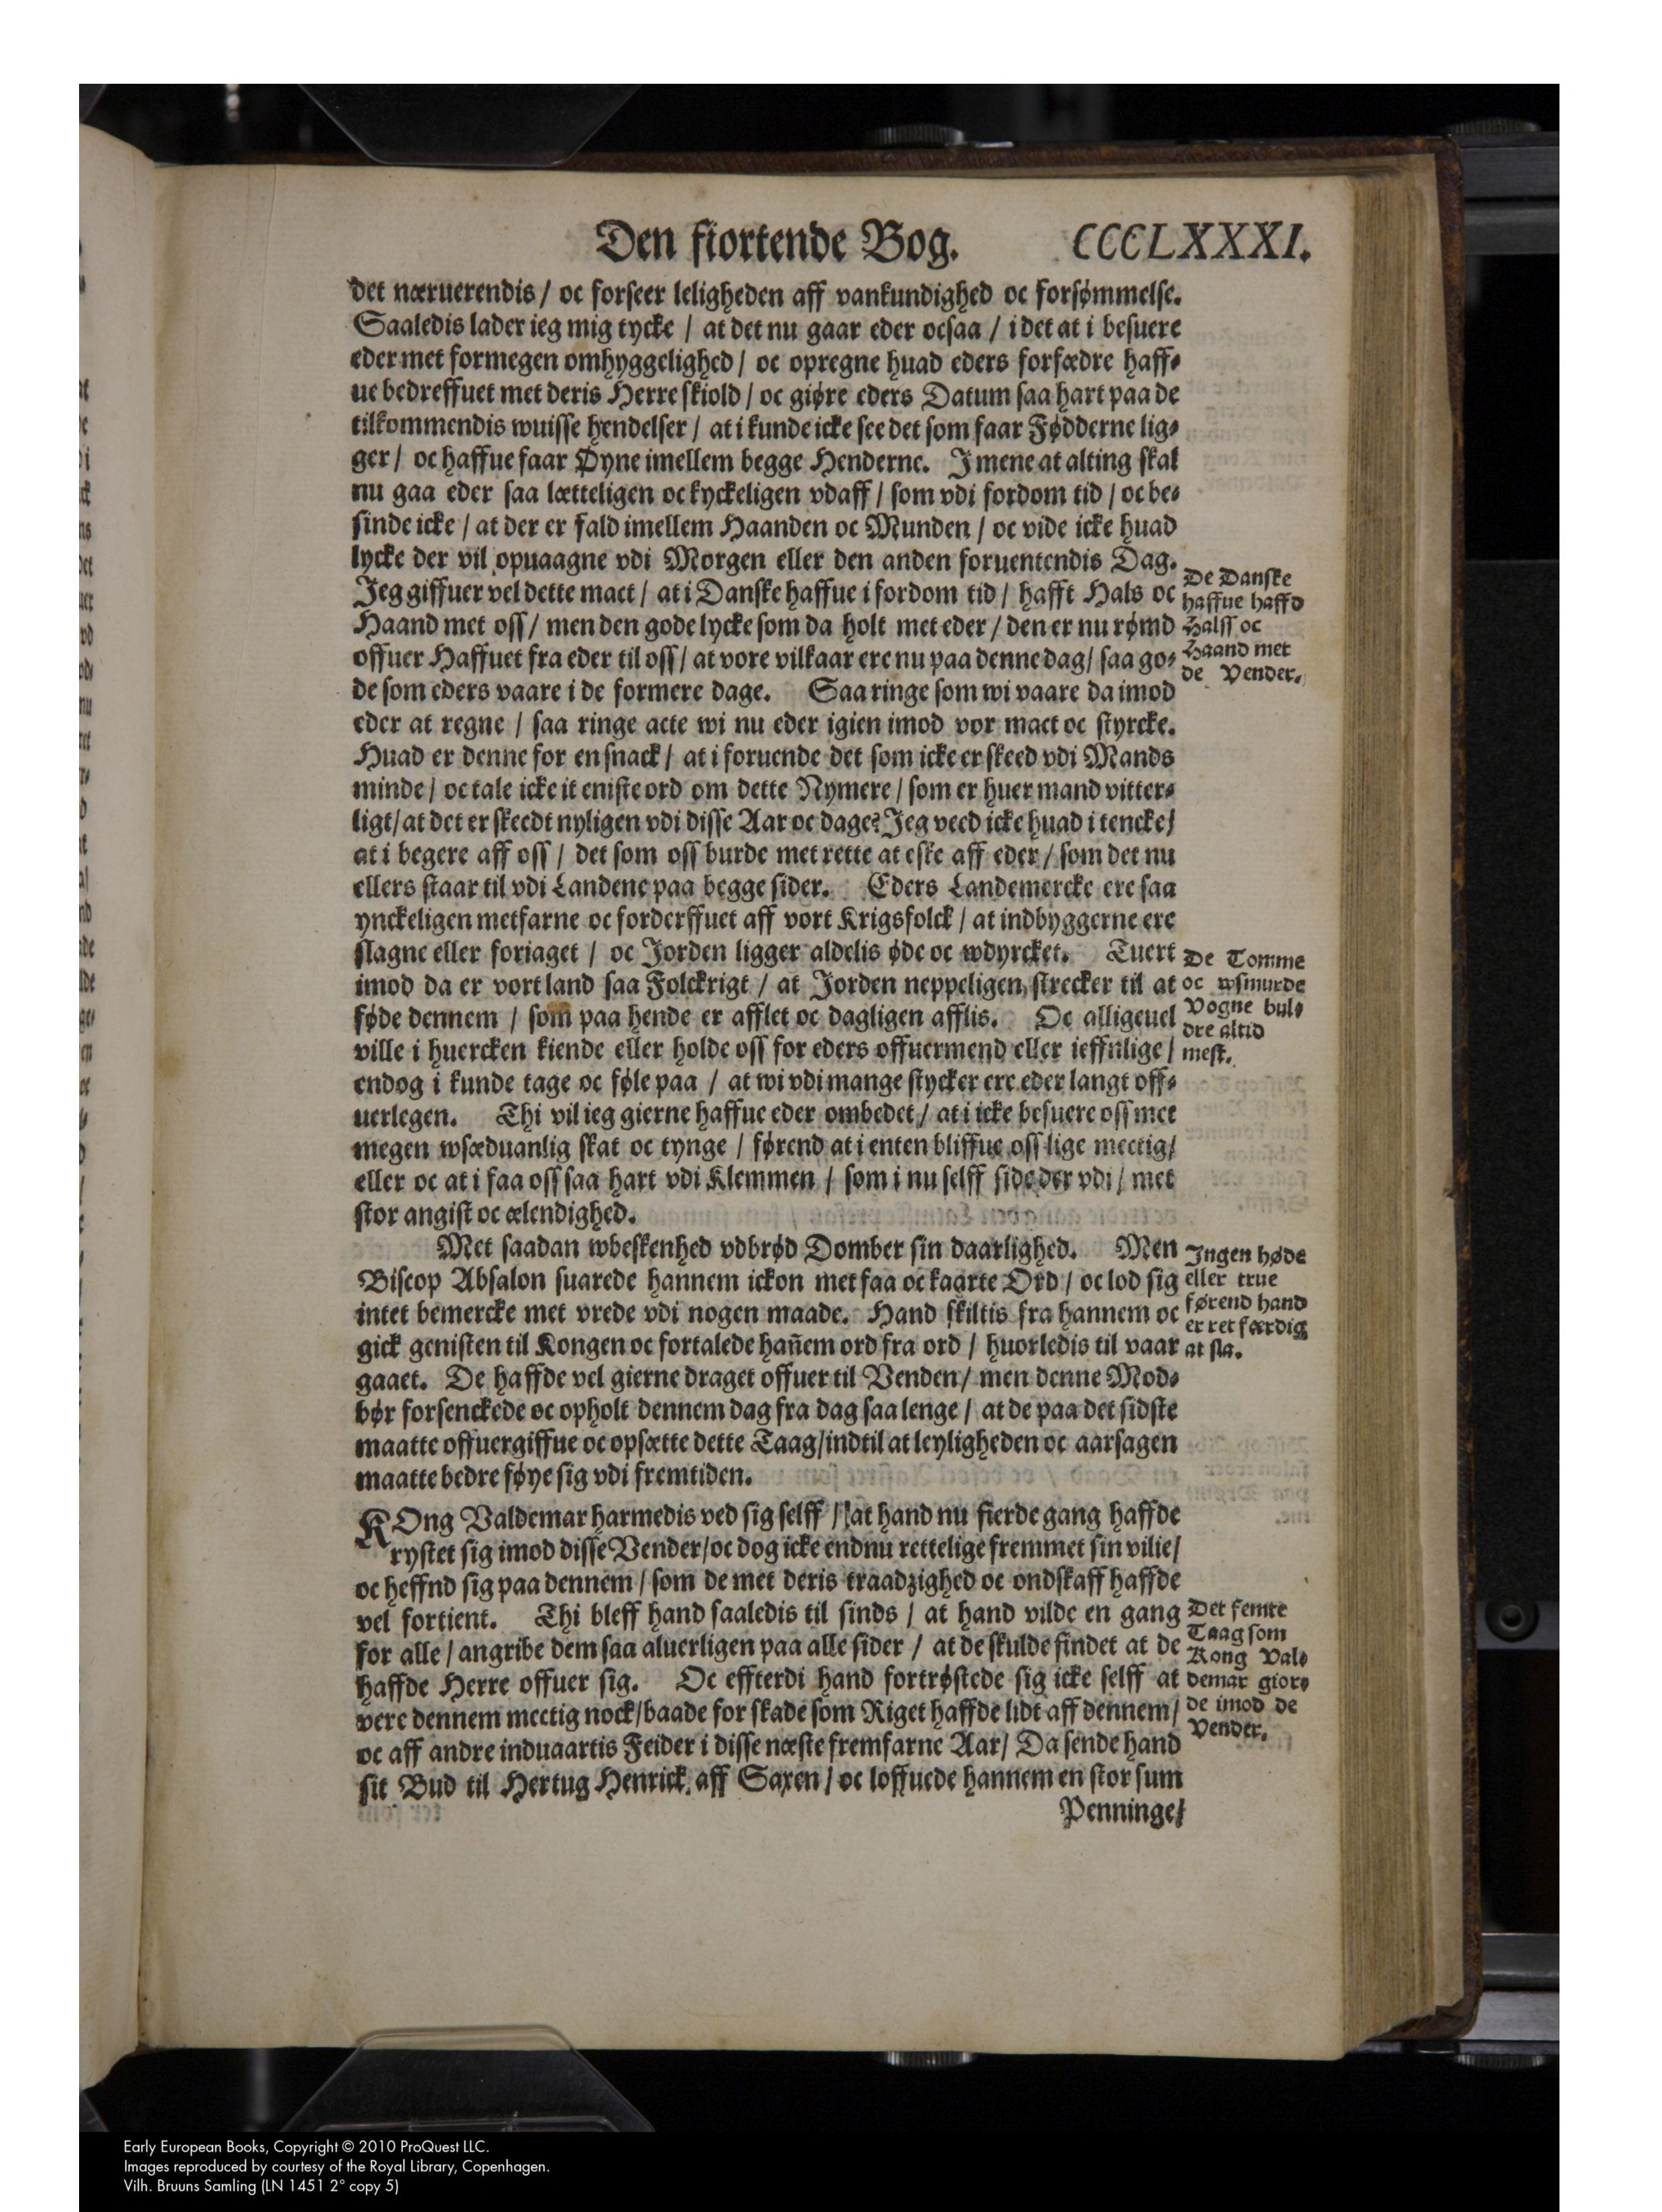 Den fiortende Bog. CCCCLXXXI.
det næruerendis / oc forseer leligheden aff vankundighed oc forsømmelse.
Saaledis lader ieg mig tycke / at det nu gaar eder ocsaa / i det at i besuere
eder met formegen omhyggelighed / oc opregne huad eders forfædre haff⸗
ue bedreffuet met deris Herre skiold / oc giøre eders Datum saa hart paa de
tilkommendis wuisse hendelser / at i kunde icke see det som faar Fødderne lig⸗
ger / oc haffue faar Øyne imellem begge Henderne. I mene at alting skal
nu gaa eder saa lætteligen oc kyckeligen vdaff / som vdi fordom tid / oc be⸗
sinde icke / at der er fald imellem Haanden oc Munden / oc vide icke huad
lycke der vil opuaagne vdi Morgen eller den anden foruentendis Dag.
Jeg giffuer vel dette mact / at i Danske haffue i fordom tid / hafft Hals oc
Haand met oss / men den gode lycke som da holt met eder / den er nu rømd
offuer Haffuet fra eder til oss / at vore vilkaar ere nu paa denne dag / saa go⸗
de som eders vaare i de formere dage. Saa ringe som wi vaare da imod
eder at regne / saa ringe acte wi nu eder igien imod vor mact oc styrcke.
De Danske
haffue haffd
Halss oc
Haand met
de Vender.
Huad er denne for en snack / at i foruende det som icke er skeed vdi Mands
minde / oc tale icke it eniste ord om dette Nymere / som er huer mand vitter⸗
ligt / at det er skeedt nyligen vdi disse Aar oc dage? Jeg veed icke huad i tencke /
at i begere aff oss / det som oss burde met rette at eske aff eder / som det nu
ellers staar til vdi Landene paa begge sider. Eders Landemercke ere saa
ynckeligen metfarne oc forderffuet aff vort Krigsfolck / at indbyggerne ere
slagne eller foriaget / oc Jorden ligger aldelis øde oc wdyrcket. Tuert
imod da er vort land saa Folckrigt / at Jorden neppeligen strecker til at
føde dennem / som paa hende er afflet oc dagligen afflis. Oc alligeuel
ville i huercken kiende eller holde oss for eders offuermend eller ieffnlige /
De Tomme
oc wsmurde
Vogne bul⸗
dre altid
mest.
endog i kunde tage oc føle paa / at wi vdi mange stycker ere eder langt off⸗
uerlegen. Thi vil ieg gierne haffue eder ombedet / at i icke besuere oss met
megen wsæduanlig skat oc tynge / førend at i enten bliffue oss lige mectig /
eller oc at i faa oss saa hart vdi Klemmen / som i nu selff side der vdi / met
stor angist oc ælendighed.
Met saadan wbeskenhed vdbrød Domber sin daarlighed. Men
Biscop Absalon suarede hannem ickon met faa oc kaarte Ord / oc lod sig
intet bemercke met vrede vdi nogen maade. Hand skiltis fra hannem oc
gick genisten til Kongen oc fortalede hañem ord fra ord / huorledis til vaar
gaaet. De haffde vel gierne draget offuer til Venden / men denne Mod⸗
Ingen høde
eller true
førend hand
er ret færdig
at sla.
bør forsenckede oc opholt dennem dag fra dag saa lenge / at de paa det sidste
maatte offuergiffue oc opsætte dette Taag / indtil at leyligheden oc aarsagen
maatte bedre føye sig vdi fremtiden.
KOng Valdemar harmedis ved sig selff / at hand nu fierde gang haffde
rystet sig imod disse Vender / oc dog icke endnu rettelige fremmet sin vilie /
oc heffnd sig paa dennem / som de met deris traadzighed oc ondskaff haffde
vel fortient. Thi bleff hand saaledis til sinds / at hand vilde en gang
for alle / angribe dem saa aluerligen paa alle sider / at de skulde findet at de
haffde Herre offuer sig. Oc effterdi hand fortrøstede sig icke selff at
vere dennem mectig nock / baade for skade som Riget haffde lidt aff dennem /
oc aff andre induaartis Feider i disse næste fremfarne Aar / Da sende hand
sit Bud til Hertug Henrick aff Saxen / oc loffuede hannem en stor sum
Det femte
Taag som
Kong Val⸗
demar gior⸗
de imod de
Vender.
Penninge /
Early European Books, Copyright © 2010 ProQuest LLC.
Images reproduced by courtesy of the Royal Library, Copenhagen.
Vilh. Bruuns Samling (LN 1451 2° copy 5)